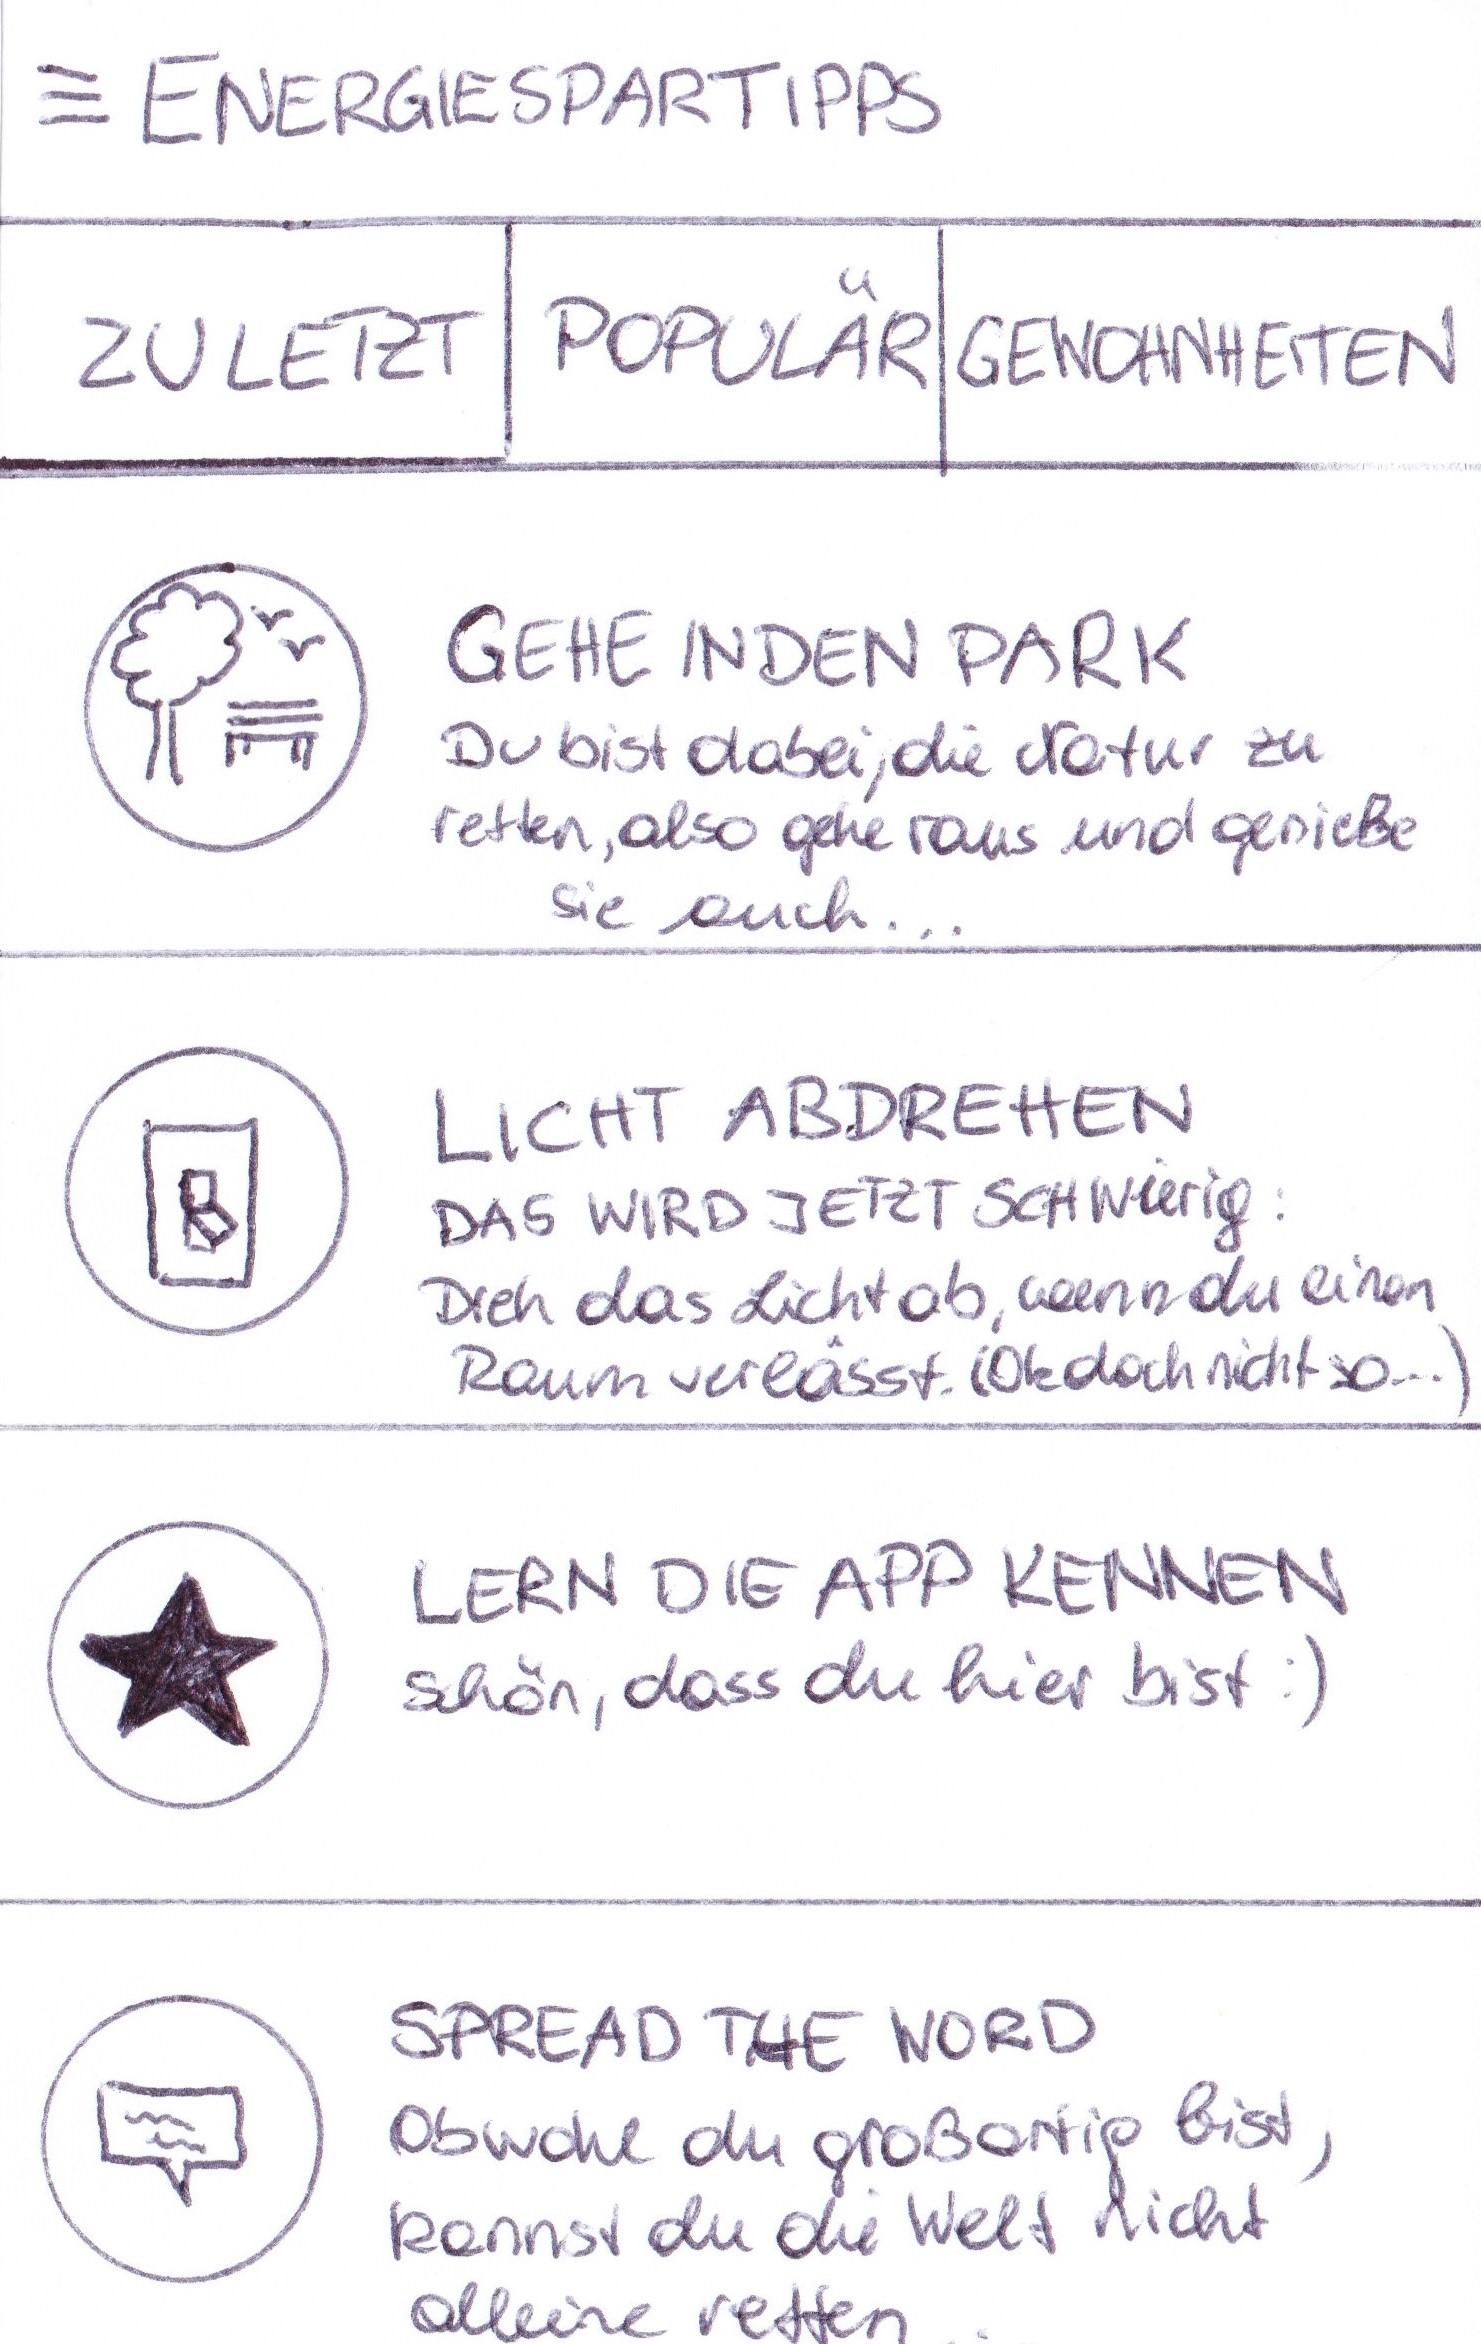 ENERGIESPARTIPPS
ZULETZT
POPULÄR
GEWOHNHEITEN
GEHE IN DEN PARK
Du bist dabei, die Natur zu
retten, also gehe raus und genieße
sie auch...
LICHT ABDREHEN
DAS WIRD JETZT SCHWierig:
Dreh das Licht ab, wenn du einen
Raum verlässt. (Ok doch nicht so...)
LERN DIE APP KENNEN
schön, dass du hier bist :)
SPREAD THE WORD
Obwohl du großartig bist,
kannst du die Welt nicht
alleine retten...